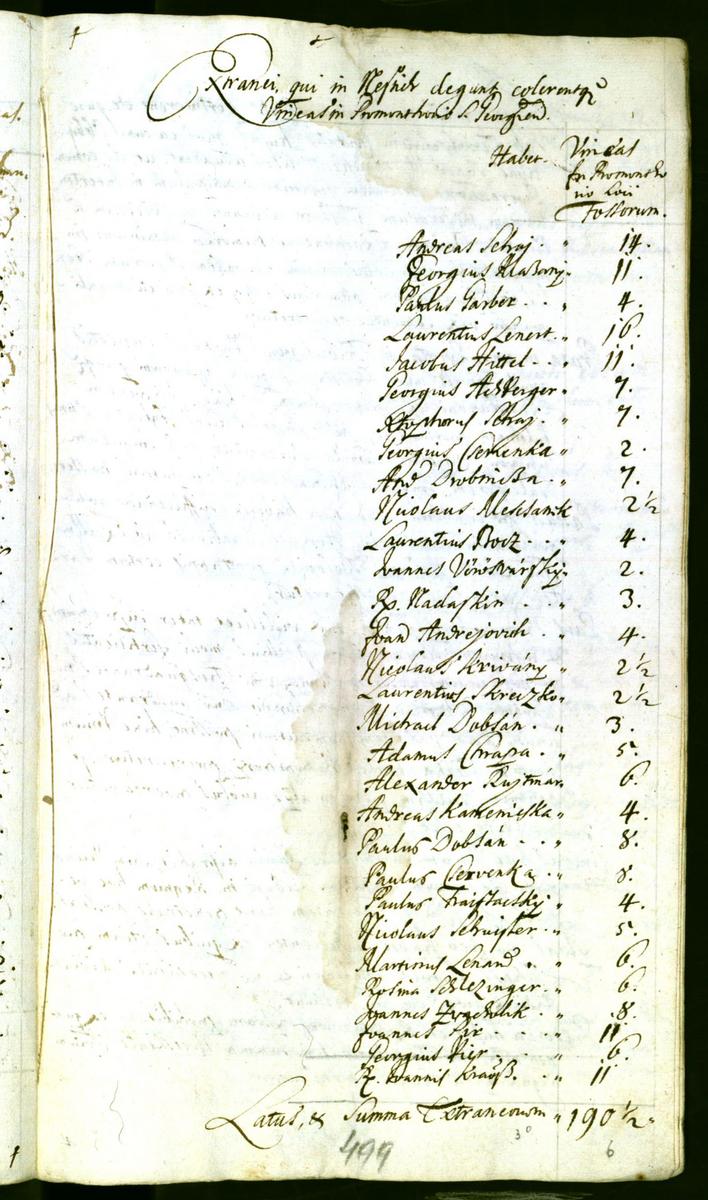 Extranei, qui in degunt, colerentq̃
Vineas in Promonthorio S. Georgiend.
Habet Vineas
in Promontho
rio Loci
Fossorum.
Andreas Schraj . " 14.
Georgius Klaßorny " 11.
Paulus Garber . . " 4.
Laurentius Lenert . " 16.
Jacobus Hittel . . " 11.
Georgius " 7.
Schraj . " 7.
Georgius Cservenka " 2.
And Drobnißa . " 7.
Nicolaus 2 ½
Laurentius . . " 4.
Joannes Vörösvárszky " 2.
Rp. Nadaskin . . " 3.
Joan Andrejovich . " 4.
Nicolaus Krivány " 2 ½
Laurentius Skreczko " 2 ½
Michael Dobsán . " 3.
Adamus Chrapa . " 5.
Alexander Rujtmár " 6.
Andreas Kamenicska " 4.
Paulus Dobsán . . " 8.
Paulus Cservenka . " 8.
Paulus " 4.
Nicolaus Schuister . " 5.
Martinus Lenard . " 6.
Rosina Schlezinger . " 6.
Joannes . " 8.
Joannes . . . " 11
Georgius Pier . . " 6.
Rp. Joannis Krauß . " 11
Latus, & Summa Extraneorum " 190 ½ "
499
6